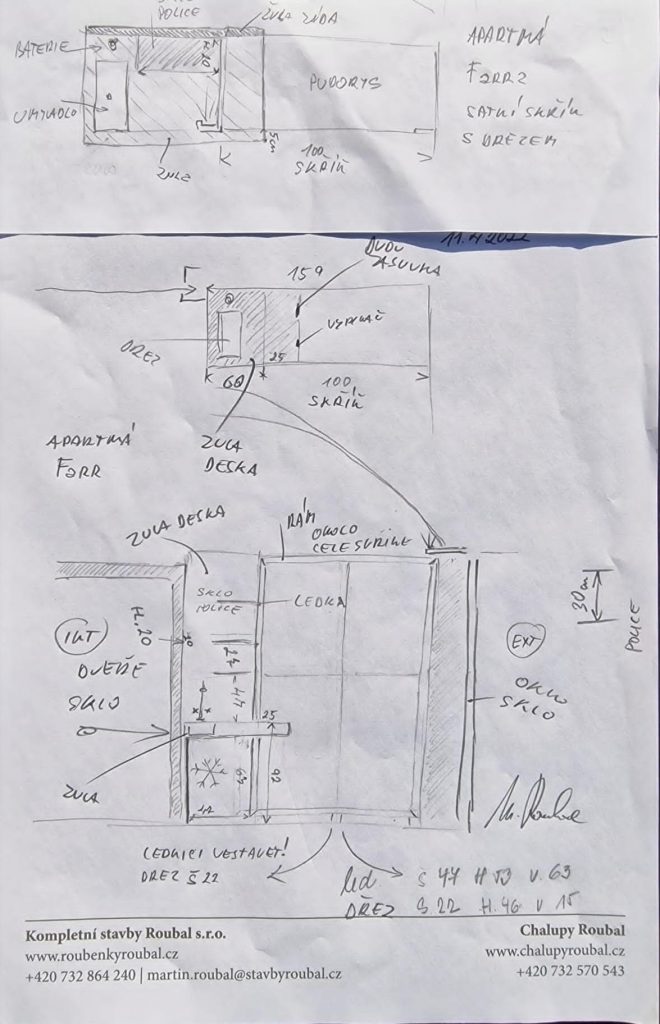 POLICE
ŽULA ZÁDA
BATERIE
H. 20
UMYVADLO
PUDORYS
APARTMÁ
FARR2
SATNÍ SKŘÍŇ
S DŘEZEM
5cm
100
SKŘÍŇ
ŽULE
11.4.2022
DVOU
ZASUVKA
159
VYPINAČ
DŘEZ
25
60
100
SKŘÍŇ
ŽULA
DESKA
APARTMÁ
FARR
ŽULA DESKA
RÁM
OKOLO
CELE SKŘÍNE
SKLO
POLICE
LEDKA
H. 20
30 cm
POLICE
INT
DVEŘE
SKLO
EXT
OKNO
SKLO
24
44
25
ŽULA
63
92
42
M. Roubal
LEDNICI VESTAVET!
DREZ Š 22
led. Š 47 H 53 V. 63
DŘEZ Š. 22 H. 46 V 15
Kompletní stavby Roubal s.r.o.
www.roubenkyroubal.cz
+420 732 864 240 | martin.roubal@stavbyroubal.cz
Chalupy Roubal
www.chalupyroubal.cz
+420 732 570 543